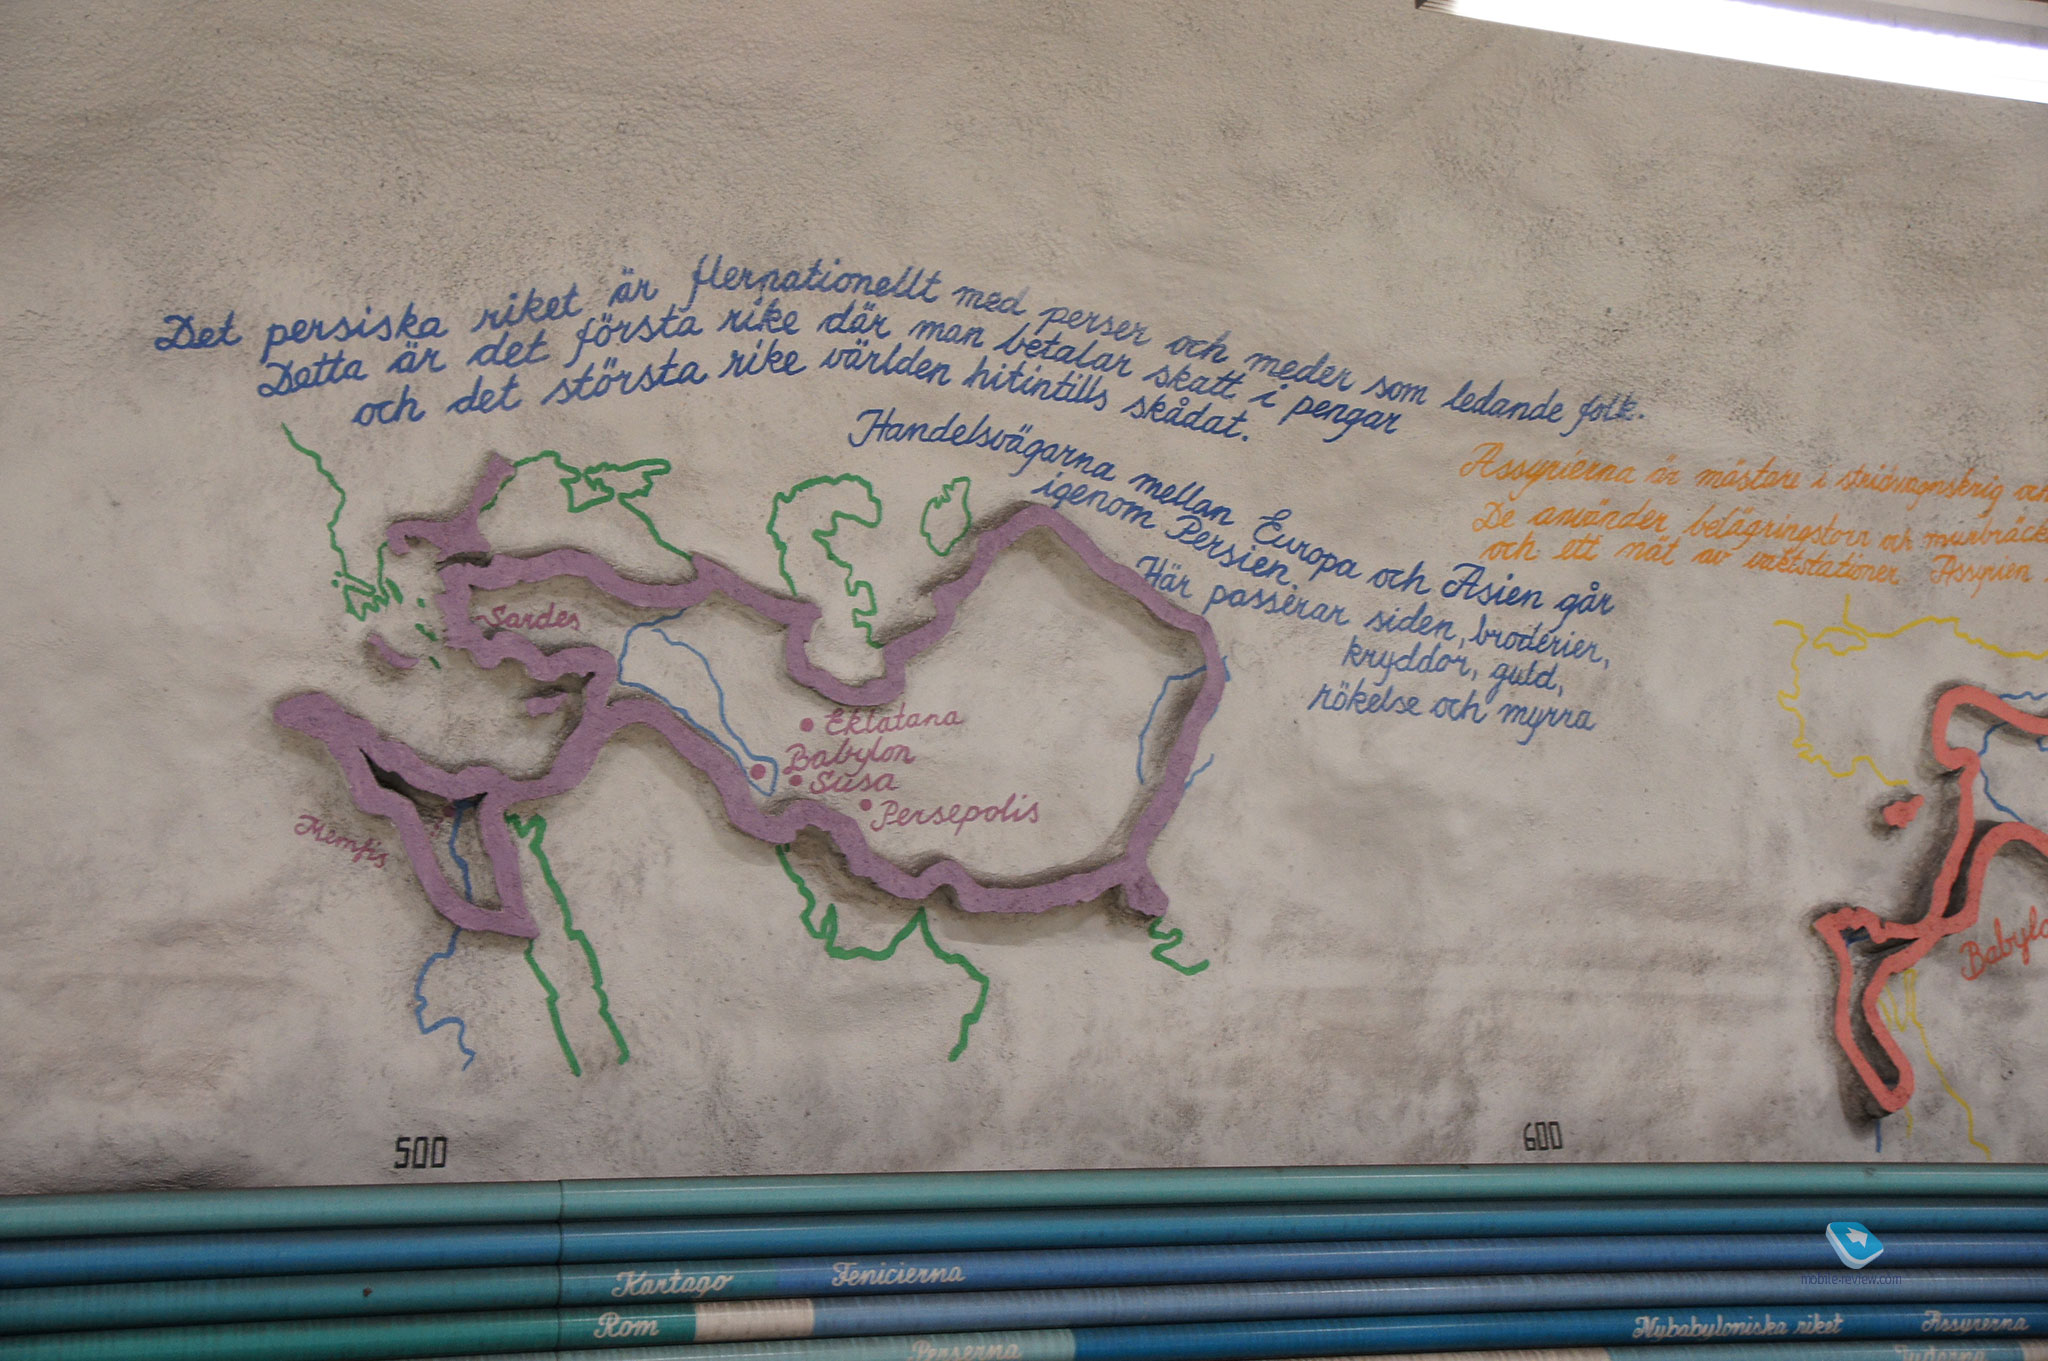 Det persiska riket är flernationellt med perser och meder som ledande folk.
Detta är det första rike där man betalar skatt i pengar
och det största rike världen hitintills skådat.
Handelsvägarna mellan Europa och Asien går
igenom Persien.
Här passerar siden, broderier,
kryddor, guld,
rökelse och myrra
Assyrierna är mästare i stridsvagnskrig och
De använder belägringstorn och murbräck
och ett nät av vaktstationer Assyrien
Sardes
Ekbatana
Babylon
Susa
Persepolis
Memfis
Babylo
500
600
Kartago Fenicierna
Rom
Nybabyloniska riket Assyrerna
Perserna
mobile-review.com